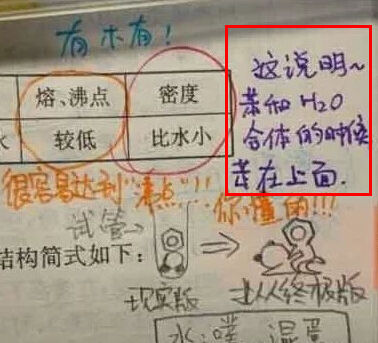 有木有!
这说明~
苯和H2O
合体的时候
苯在上面.
熔、沸点 密度
较低 比水小
很容易达到"沸点"!!
你懂的!!!
试管
结构简式如下:
现实版
终极版
水:噗